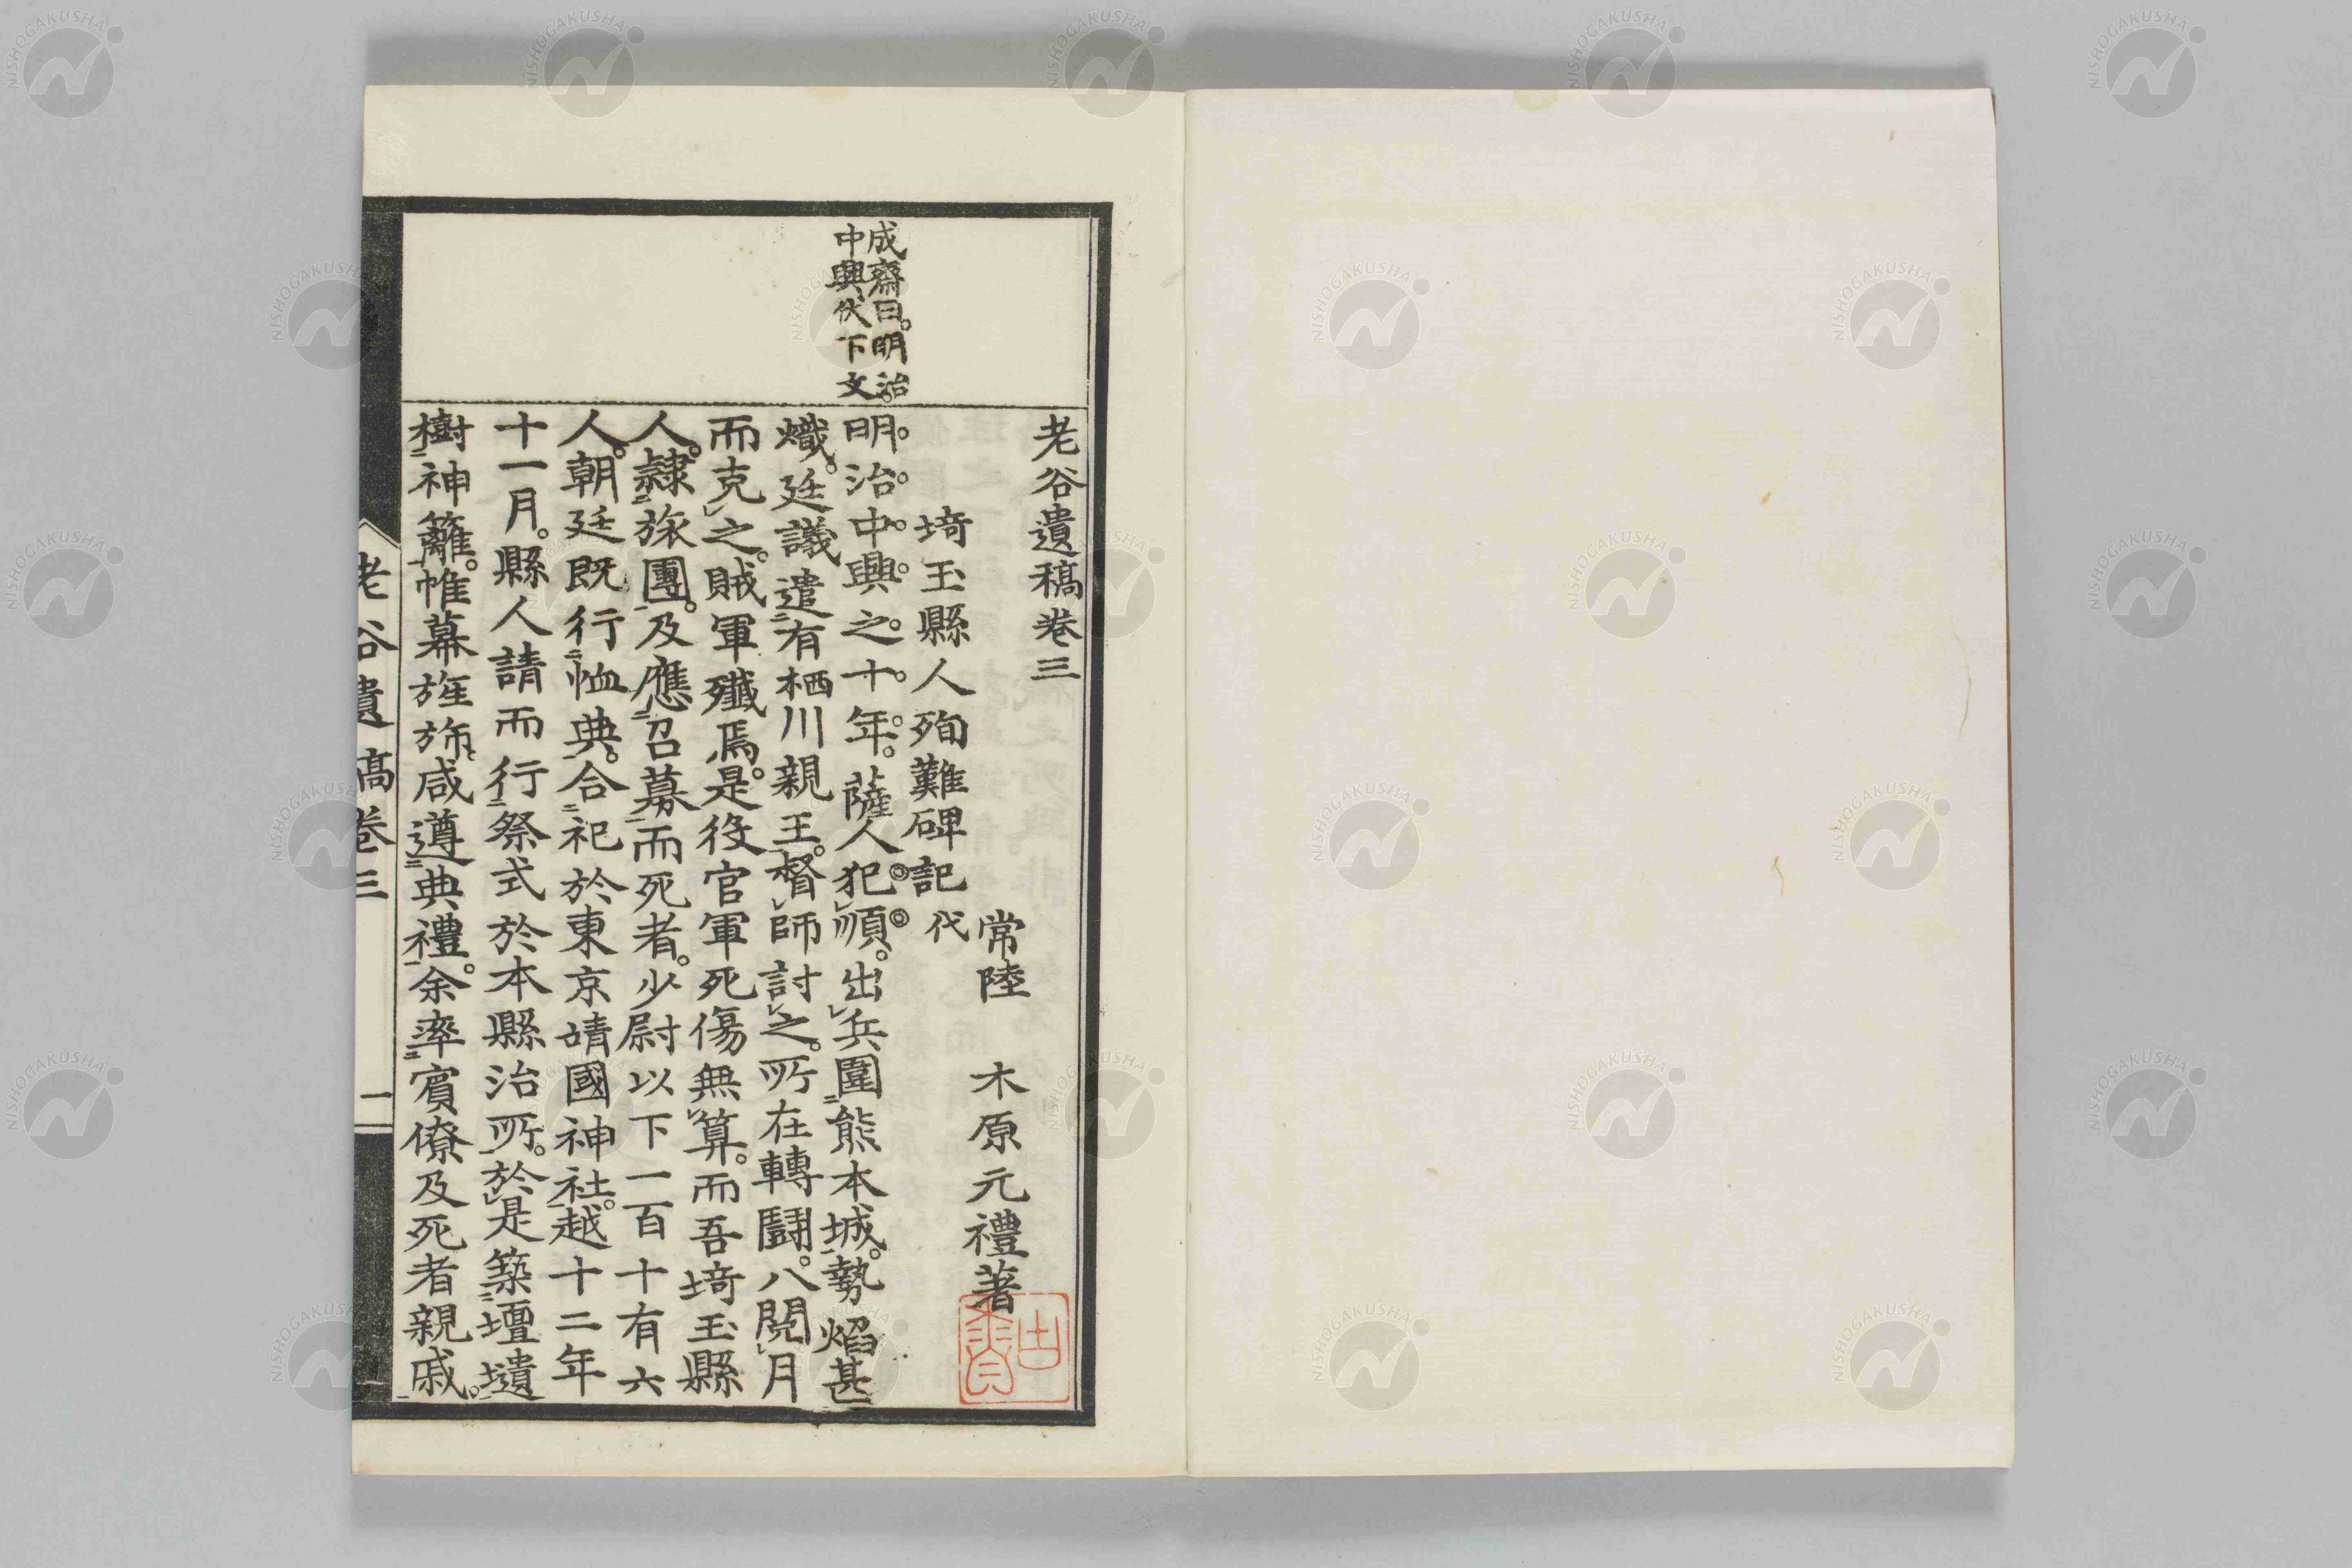 老谷遺稿卷三
常陸 木原元禮著
埼玉縣人殉難碑記 代
成齋曰。明治
中興伏下文。
明治中興之十年。薩人犯順。出兵圍熊本城。勢焰甚
熾。廷議遣有栖川親王。督師討之。所在轉鬪。八閱月
而克之。賊軍殲焉。是役官軍死傷無算。而吾埼玉縣
人。隷旅團。及應召募而死者。少尉以下一百十有六
人。朝廷既行恤典。合祀於東京靖國神社。越十二年
十一月。縣人請而行祭式於本縣治所。於是築壇壝
樹神籬。帷幕旌旆。咸遵典禮。余率賓僚及死者親戚。
老谷遺稿卷三
一
NISHOGAKUSHA